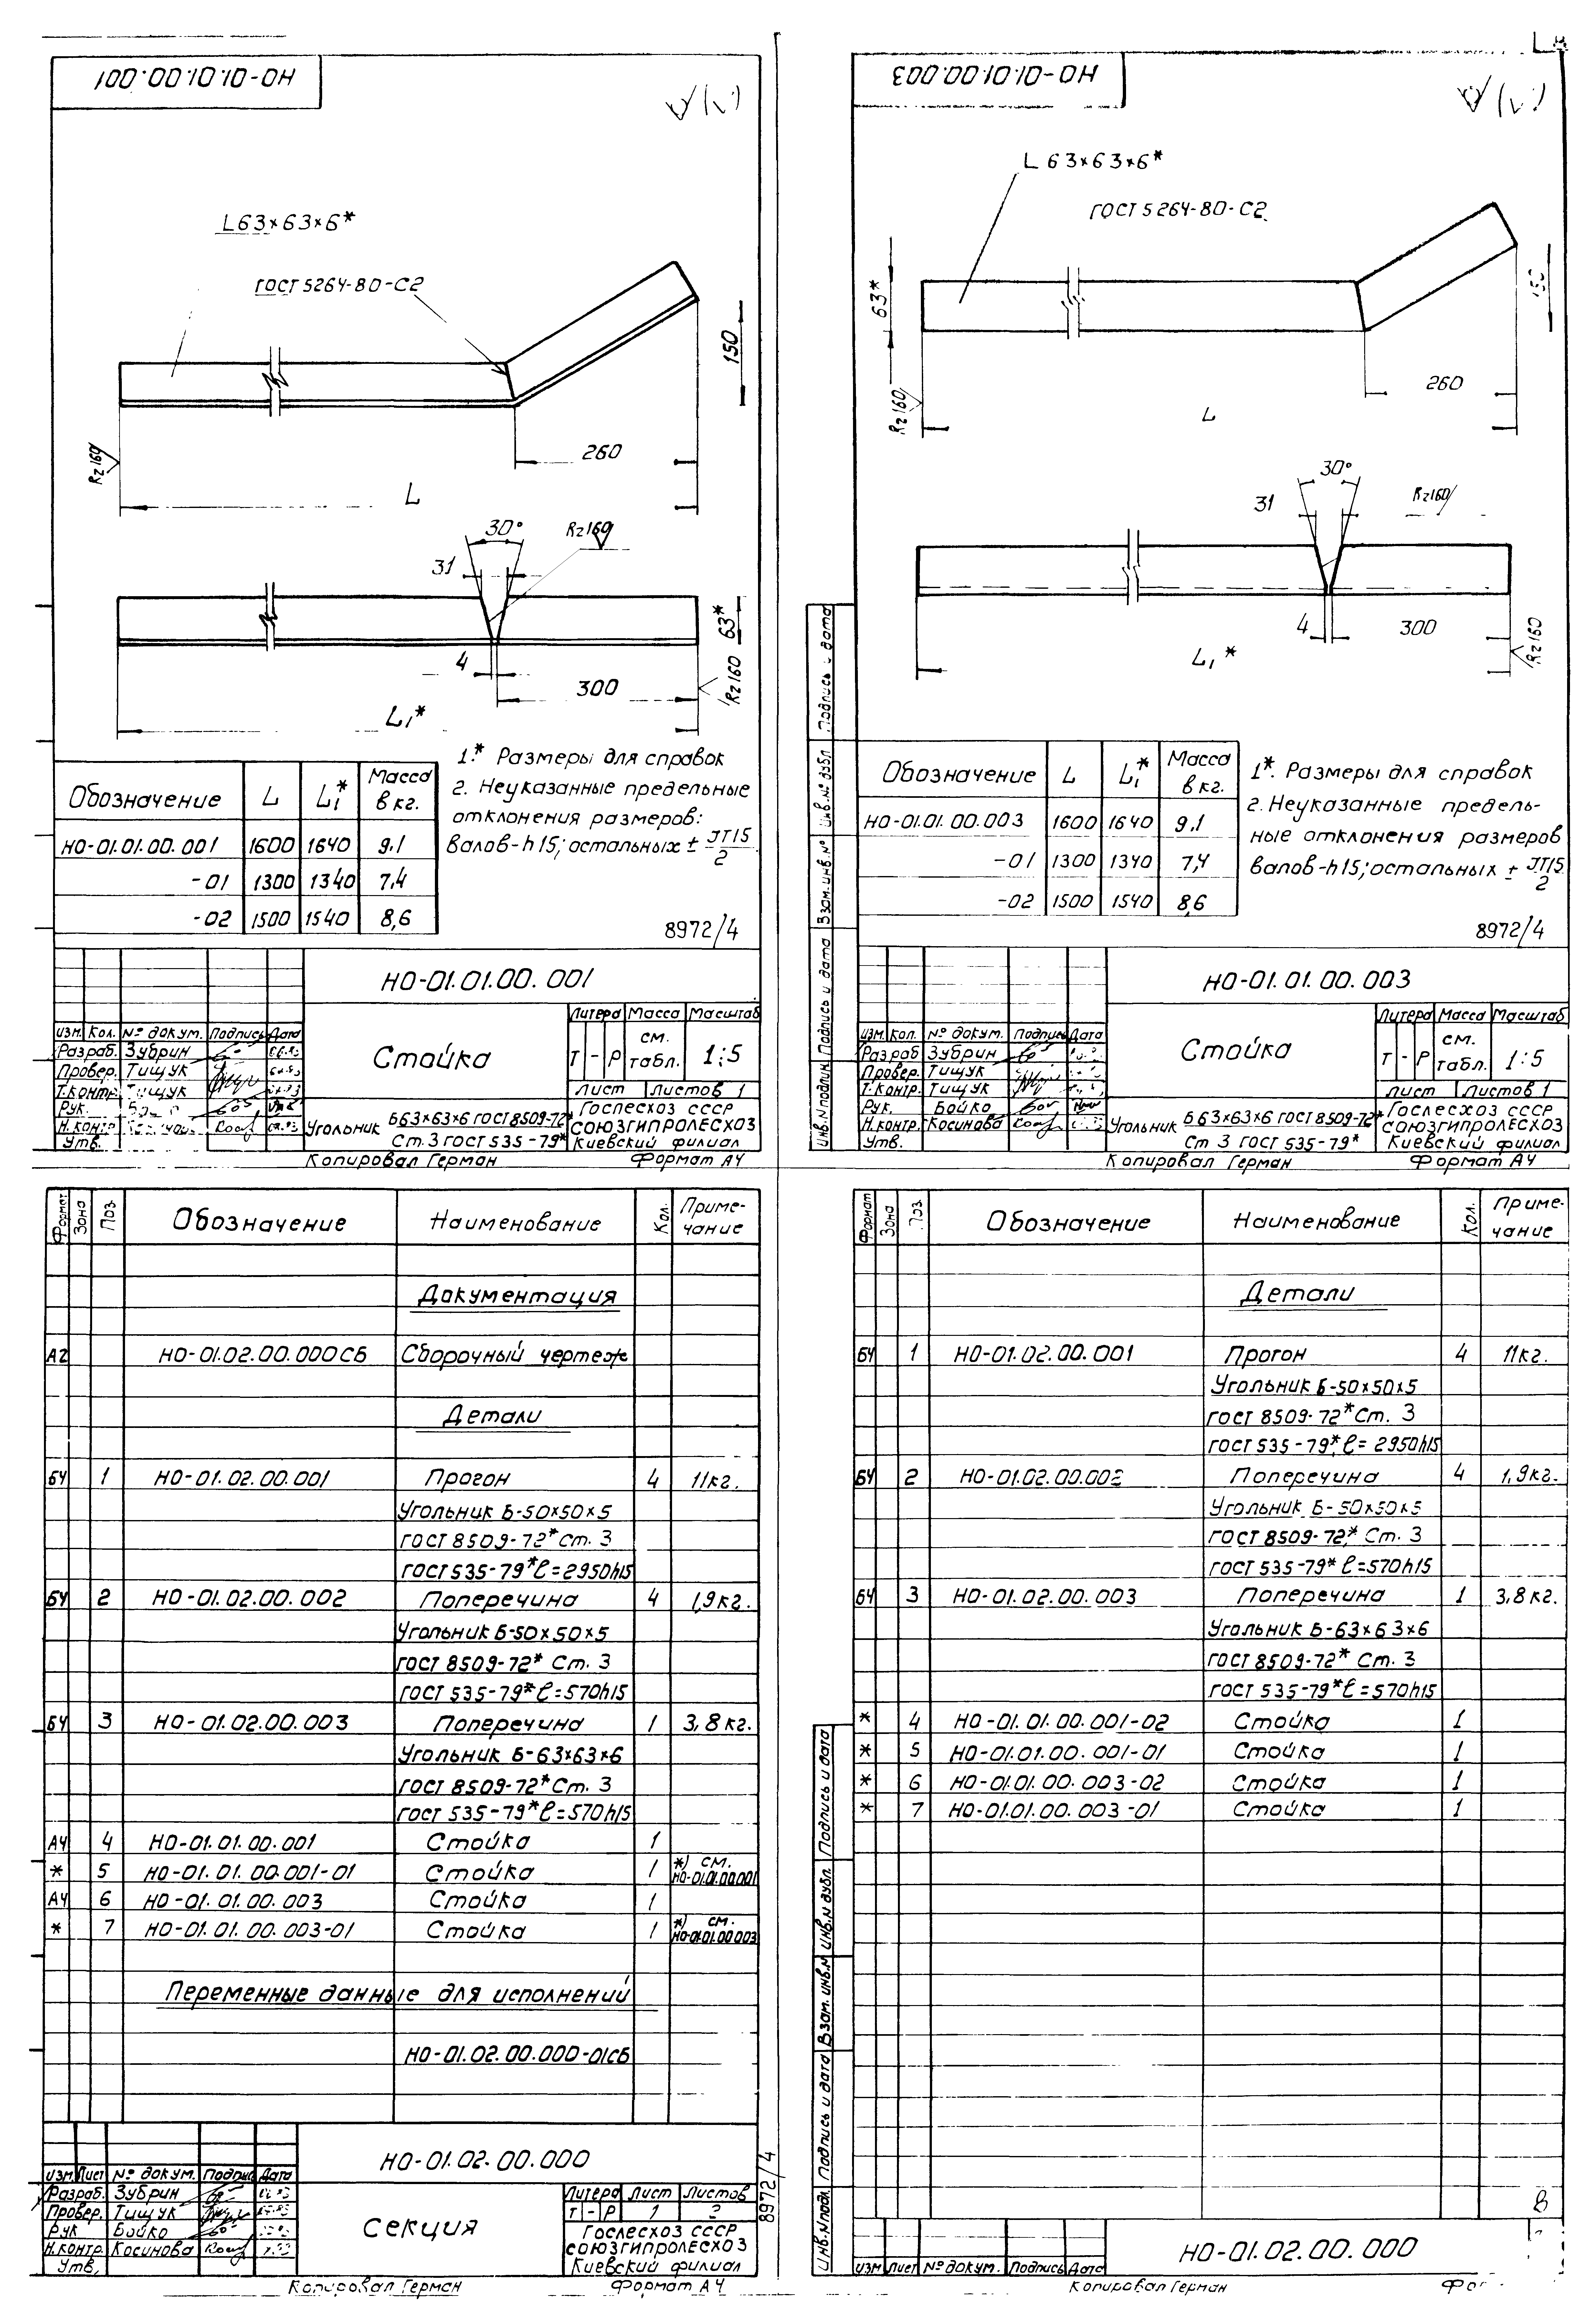 НО-01.01.00.001
L63×63×6*
ГОСТ 5264-80-С2
150
260
Rz160
L
30°
Rz160
31
63*
4
300
Rz160
L₁*
Обозначение L L₁* Масса в кг.
НО-01.01.00.001 1600 1640 9,1
-01 1300 1340 7,4
-02 1500 1540 8,6
1.* Размеры для справок
2. Неуказанные предельные
отклонения размеров:
валов-h15; остальных ± JT15/2
8972/4
НО-01.01.00.001
Литера Масса Масштаб
Т - Р см. табл. 1:5
Лист Листов 1
Изм. Кол. № докум. Подпись Дата
Разраб. Зубрин
Провер. Тищук
Т.контр. Тищук
Рук.
Н.контр.
Утв.
Стойка
Угольник Б63×63×6 ГОСТ 8509-72*
Ст.3 ГОСТ 535-79*
Гослесхоз СССР
СОЮЗГИПРОЛЕСХОЗ
Киевский филиал
Копировал Герман Формат А4
НО-01.01.00.003
L63×63×6*
ГОСТ 5264-80-С2
63*
260
Rz160
L
30°
31
Rz160
4
300
Rz160
L₁*
Обозначение L L₁* Масса в кг.
НО-01.01.00.003 1600 1640 9,1
-01 1300 1340 7,4
-02 1500 1540 8,6
1*. Размеры для справок
2. Неуказанные предель-
ные отклонения размеров
валов-h15; остальных ± JT15/2
8972/4
Инв.N подлин. Подпись и дата Взам.инв.№ Инв.№ дубл Подпись и дата
НО-01.01.00.003
Литера Масса Масштаб
Т - Р см. табл. 1:5
Лист Листов 1
Изм. Кол. № докум. Подпись Дата
Разраб Зубрин
Провер. Тищук
Т.контр. Тищук
Рук. Бойко
Н.контр. Косинова
Утв.
Стойка
Угольник Б63×63×6 ГОСТ 8509-72*
Ст 3 ГОСТ 535-79*
Гослесхоз СССР
СОЮЗГИПРОЛЕСХОЗ
Киевский филиал
Копировал Герман Формат А4
Формат Зона Поз. Обозначение Наименование Кол. Приме-
чание
Документация
А2 НО-01.02.00.000СБ Сборочный чертеж
Детали
БЧ 1 НО-01.02.00.001 Прогон 4 11кг.
Угольник Б-50×50×5
ГОСТ 8509-72* Ст. 3
ГОСТ 535-79* ℓ=2950h15
БЧ 2 НО-01.02.00.002 Поперечина 4 1,9кг.
Угольник Б-50×50×5
ГОСТ 8509-72* Ст. 3
ГОСТ 535-79* ℓ=570h15
БЧ 3 НО-01.02.00.003 Поперечина 1 3,8кг.
Угольник Б-63×63×6
ГОСТ 8509-72* Ст. 3
ГОСТ 535-79* ℓ=570h15
А4 4 НО-01.01.00.001 Стойка 1
* 5 НО-01.01.00.001-01 Стойка 1 *) см.
НО-01.01.00.001
А4 6 НО-01.01.00.003 Стойка 1
* 7 НО-01.01.00.003-01 Стойка 1 *) см.
НО-01.01.00.003
Переменные данные для исполнений
НО-01.02.00.000-01СБ
НО-01.02.00.000
8972/4
Изм. Лист № докум. Подпис Дата
Разраб. Зубрин
Провер. Тищук
Рук Бойко
Н.контр. Косинова
Утв.
Секция
Литера Лист Листов
Т - Р 1
Гослесхоз СССР
СОЮЗГИПРОЛЕСХОЗ
Киевский филиал
Копировал Герман Формат А4
Формат Зона Поз. Обозначение Наименование Кол. Приме-
чание
Детали
БЧ 1 НО-01.02.00.001 Прогон 4 11кг.
Угольник Б-50×50×5
ГОСТ 8509-72* Ст. 3
ГОСТ 535-79* ℓ=2950h15
БЧ 2 НО-01.02.00.002 Поперечина 4 1,9кг.
Угольник Б-50×50×5
ГОСТ 8509-72* Ст. 3
ГОСТ 535-79* ℓ=570h15
БЧ 3 НО-01.02.00.003 Поперечина 1 3,8кг.
Угольник Б-63×63×6
ГОСТ 8509-72* Ст. 3
ГОСТ 535-79* ℓ=570h15
* 4 НО-01.01.00.001-02 Стойка 1
* 5 НО-01.01.00.001-01 Стойка 1
* 6 НО-01.01.00.003-02 Стойка 1
* 7 НО-01.01.00.003-01 Стойка 1
Инв.N подл. Подпись и дата Взам. инв.N Инв.N дубл. Подпись и дата
8
НО-01.02.00.000
Изм Лист № докум. Подпись Дата
Копировал Герман